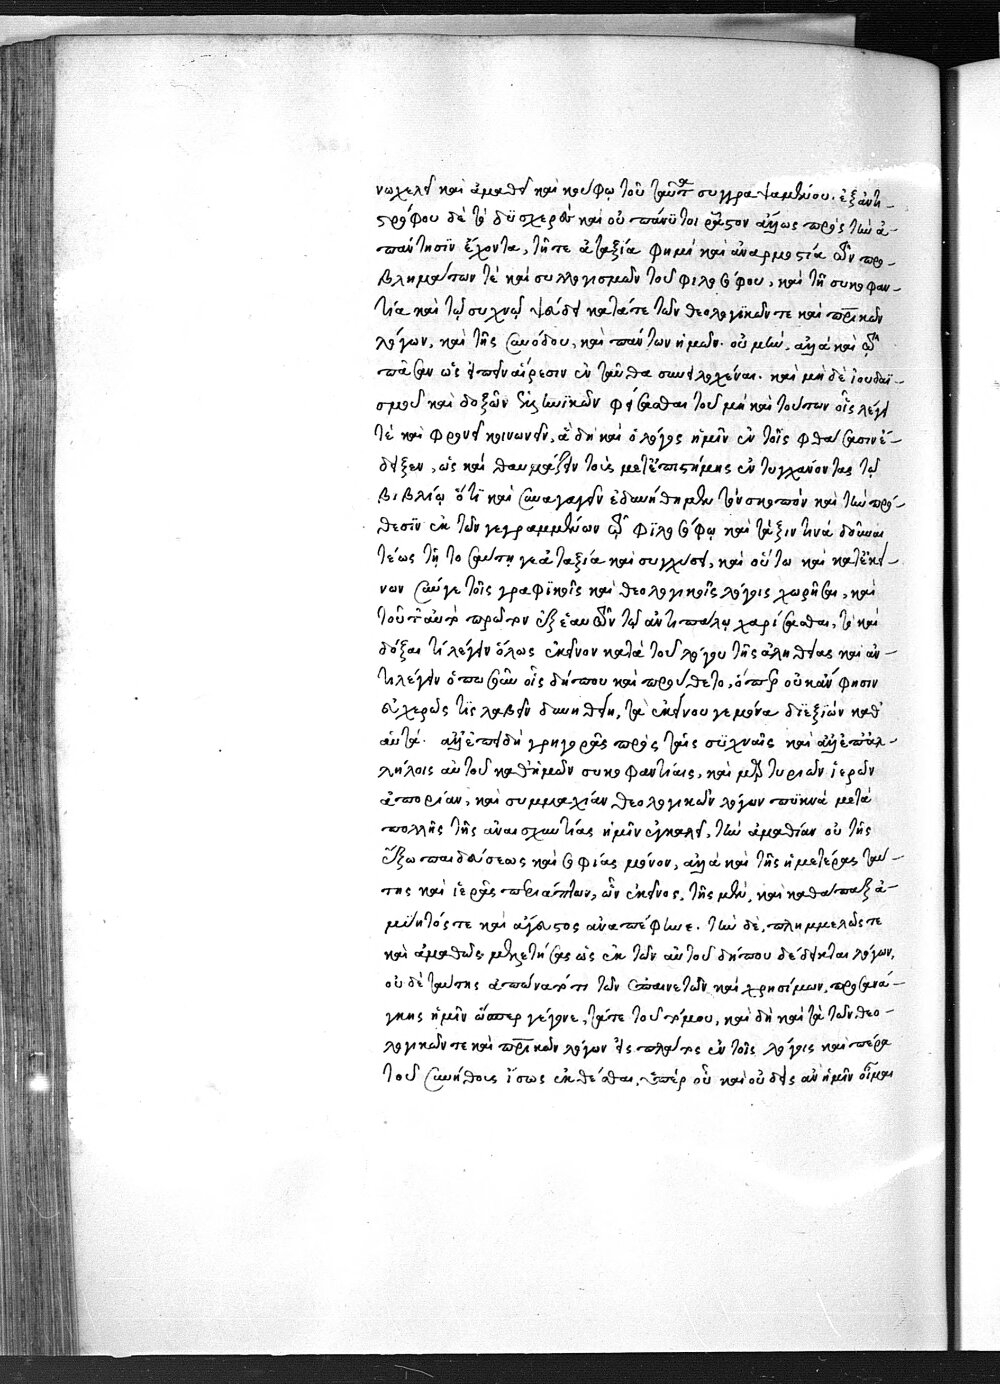 νωχελεῖ καὶ ἀμαθεῖ καὶ κούφῳ τοῦ ταῦτα συγγραψαμένου. ἐξ ἀντι-
στρόφου δὲ τὸ δυσχερὲς καὶ οὐ πάνυ τοι ῥᾷστον ἄλλως πρὸς τὴν ἀ-
πάντησιν ἔχοντα, τῇ τε ἀταξίᾳ φημὶ καὶ ἀναρμοστίᾳ τῶν προ-
βλημάτων τε καὶ συλλογισμῶν τοῦ φιλοσόφου, καὶ τῇ συκοφαν-
τίᾳ καὶ τῷ συχνῷ ψεύδει κατά τε τῶν θεολογικῶν τε καὶ πατρικῶν
λόγων, καὶ τῆς συνόδου, καὶ πάντων ἡμῶν. οὐ μὴν, ἀλλὰ καὶ τῷ
πᾶσαν ὡς εἰπεῖν αἵρεσιν ἐν ταῦθα συνειλοχέναι. καὶ μὴ δὲ ἰουδαϊ-
σμοῦ καὶ δοξῶν ἑλληνικῶν φείσασθαι τοῦ μὴ καὶ τούτων οἷς λέγει
τε καὶ φρονεῖ κοινωνεῖν, ἃ δὴ καὶ ὁ λόγος ἡμῖν ἐν τοῖς φθάσασιν ἔ-
δειξεν, ὡς καὶ θαυμάζειν τοὺς μετ' ἐπιστήμης ἐντυγχάνοντας τῷ
βιβλίῳ ὅτι καὶ συναγαγεῖν ἐδυνήθημεν τὸν σκοπὸν καὶ τὴν πρό-
θεσιν ἐκ τῶν γεγραμμένων τῷ φιλοσόφῳ καὶ τάξιν τινὰ δοῦναι
τέως τῇ τοσαύτῃ γε ἀταξίᾳ καὶ συγχύσει, καὶ οὕτω καὶ κατ' ἐκεί-
νων σύν γε τοῖς γραφικοῖς καὶ θεολογικοῖς λόγοις χωρῆσαι, καὶ
τοῦτ' αὐτὸ πρῶτον ἐξ ἑαυτῶν τῷ ἀντιπάλῳ χαρίσασθαι, τὸ καὶ
δόξαι τι λέγειν ὅλως ἐκεῖνον κατὰ τοῦ λόγου τῆς ἀληθείας καὶ ἀν-
τιλέγειν ὁπωσοῦν οἷς δήπου καὶ προύθετο, ὅπερ οὐκ ἂν φησὶν
εὐχερῶς τις λαβεῖν δυνηθείη, τὰ ἐκείνου γε μόνα διεξιὼν καθ'
αὑτά. ἀλλ' ἐπειδὴ γρηγορᾶς πρὸς ταῖς συχναῖς καὶ ἀλλεπάλ-
λήλοις αὐτοῦ καθ' ἡμῶν συκοφαντίαις, καὶ μαρτυριῶν ἱερῶν
ἀπορίαν, καὶ συμμαχίαν θεολογικῶν λόγων πυκνὰ μετὰ
πολλῆς τῆς ἀναισχυντίας ἡμῖν ἐγκαλεῖ, τὴν ἀμαθίαν οὐ τῆς
ἔξω παιδεύσεως καὶ σοφίας μόνον, ἀλλὰ καὶ τῆς ἡμετέρας ταύ-
της καὶ ἱερᾶς περιάπτων, ὧν ἐκεῖνος, τῆς μὲν, καὶ καθάπαξ ἀ-
μύητός τε καὶ ἄγευστος ἀναπέφηνε. τὴν δὲ, πλημμελῶς τε
καὶ ἀμαθῶς μετῃτήσας ὡς ἐκ τῶν αὐτοῦ δήπου δέδεικται λόγων,
οὐδὲ ταύτης ἀπώνατό τι τῶν ἐπαινετῶν καὶ χρησίμων, προσανά-
γκης ἡμῖν ὥσπερ γέγονε, τά τε τοῦ τόμου, καὶ δὴ καὶ τὰ τῶν θεο-
λογικῶν τε καὶ πατρικῶν λόγων εἰς πλάτος ἐν τοῖς λόγοις καὶ πέρα
τοῦ συνήθους ἴσως ἐκθέσθαι, ὑπὲρ οὗ καὶ οὐδεὶς ἂν ἡμῖν οἶμαι